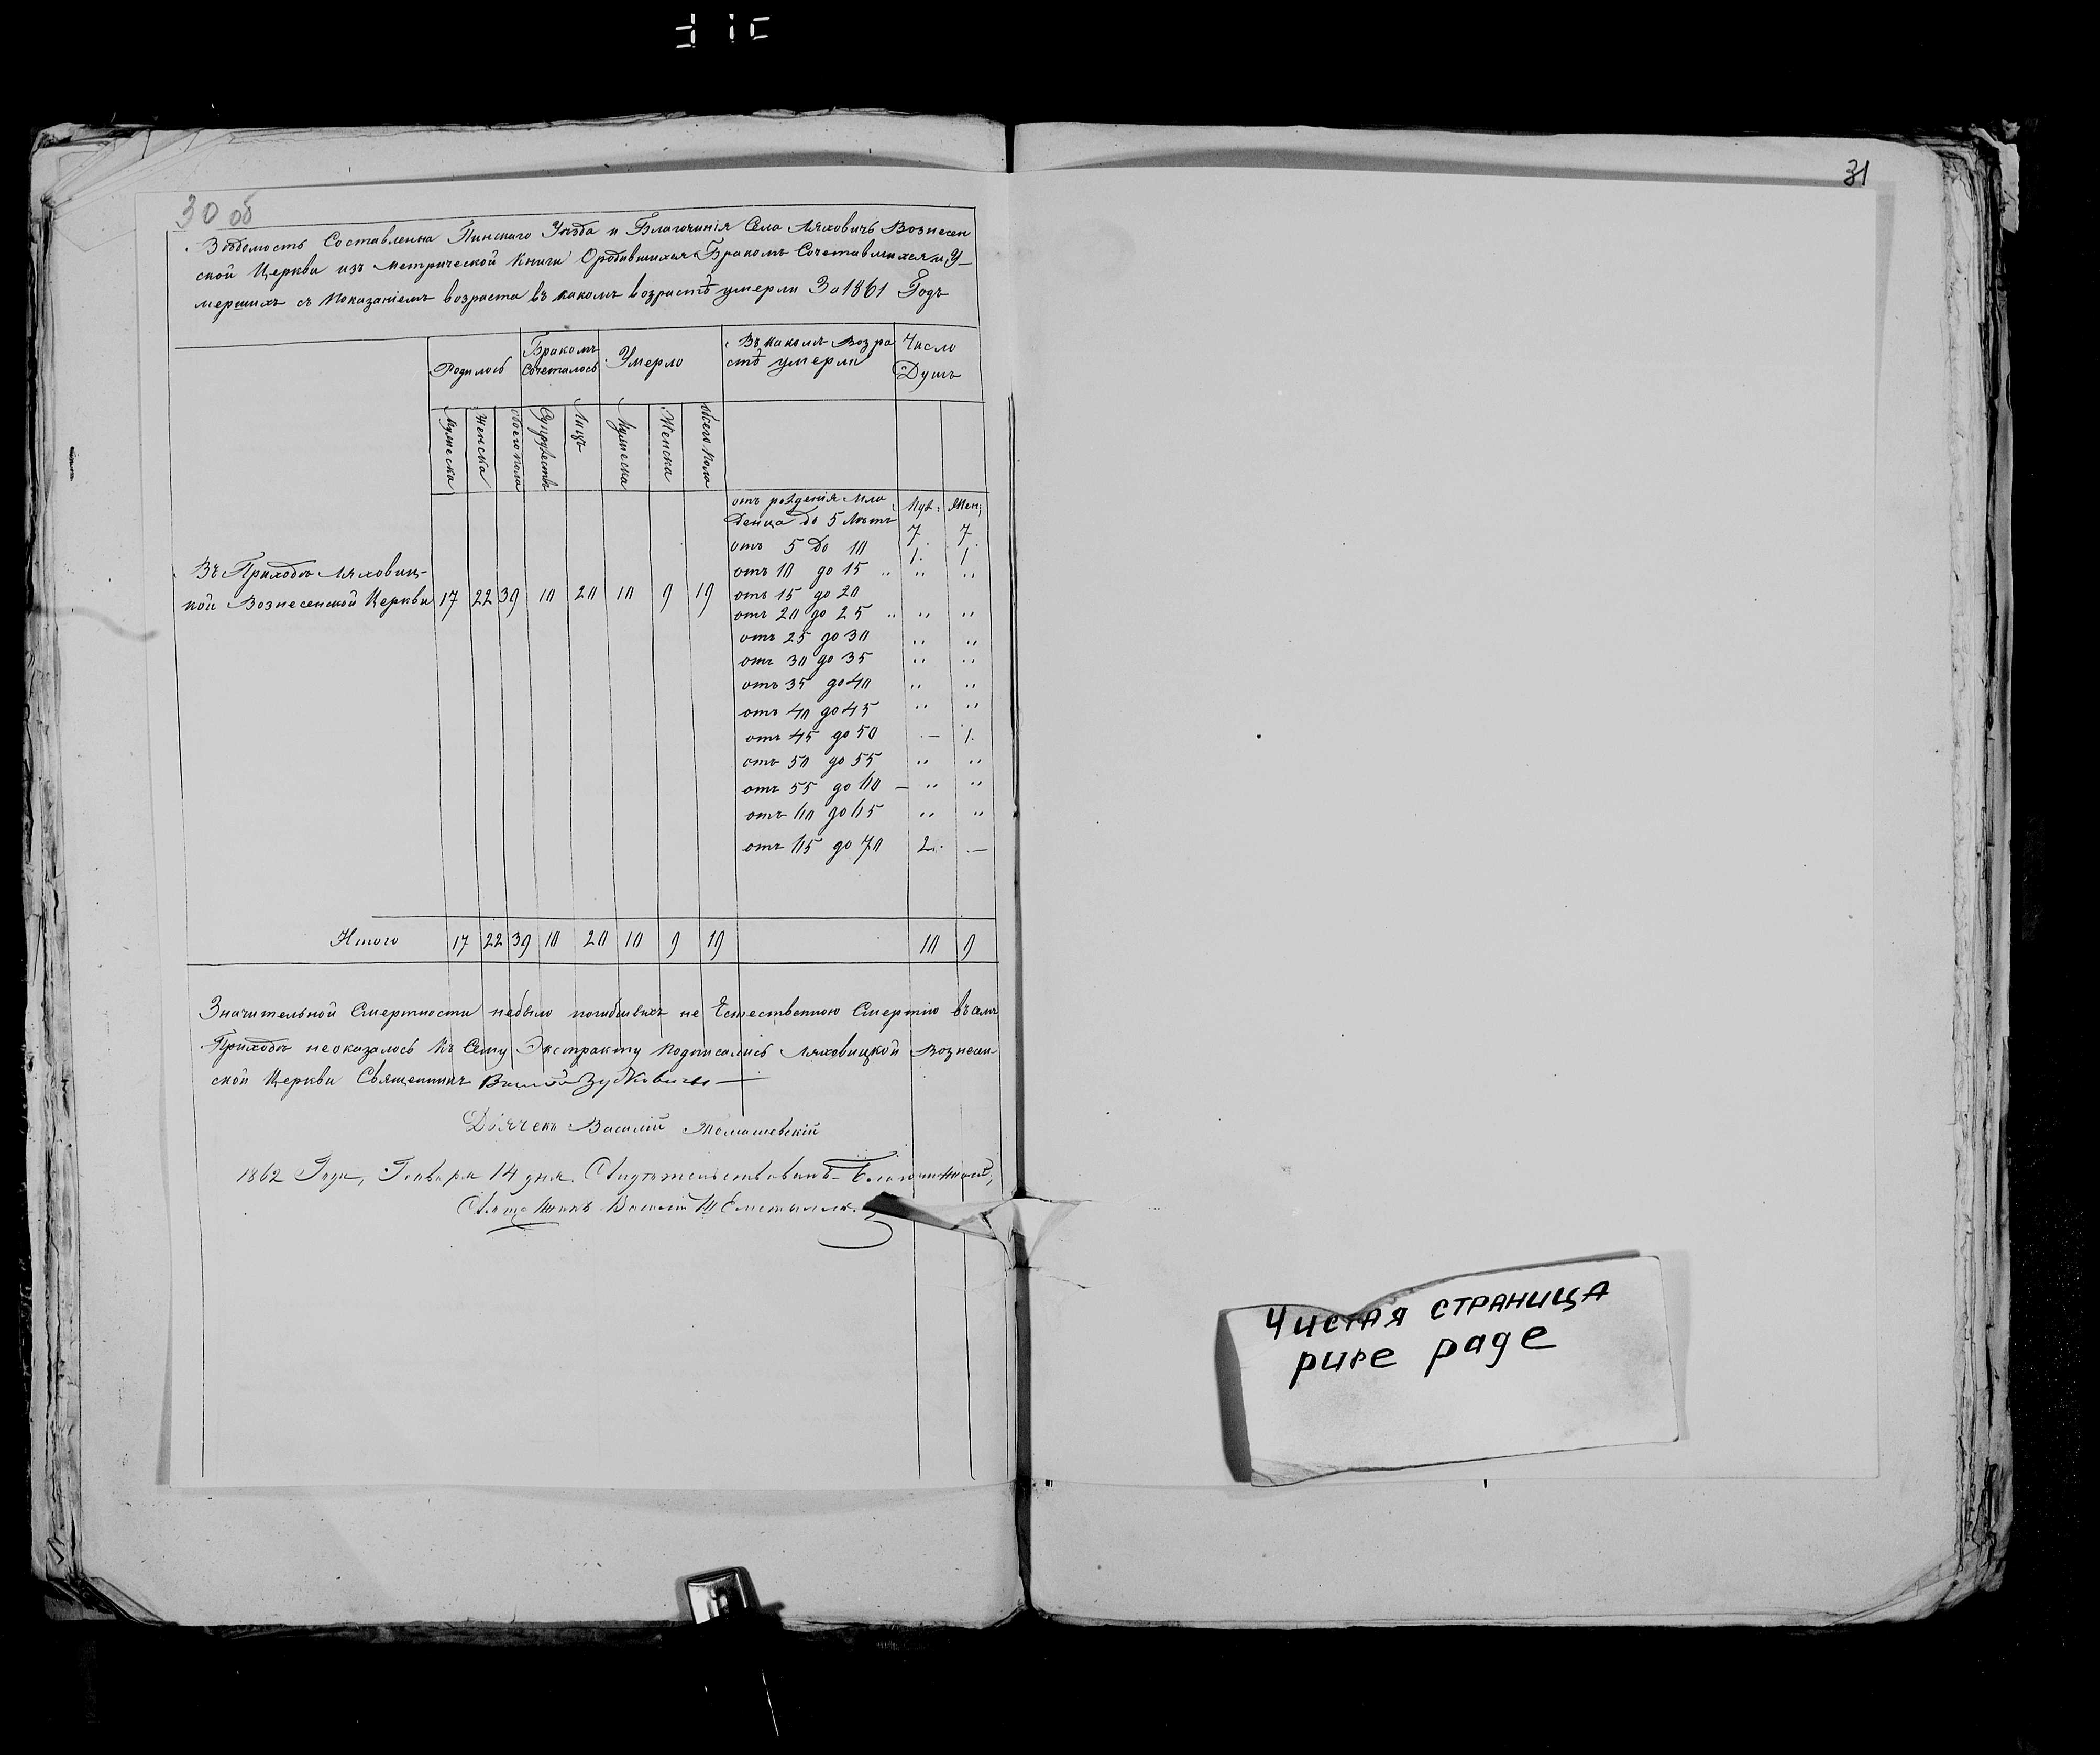 30 об
31
Вѣдомость Составленна Пинскаго Уѣзда и Благочинія Села Ляховичъ Вознесен
ской Церкви изъ метрической Книги О родившихся Бракомъ Сочетавшихся и У-
мершихъ съ показаніемъ возраста въ какомъ возрастѣ умерли За 1861 Годъ
Родилось Бракомъ Сочеталось Умерло Въ какомъ Возра стѣ умерли Число Душъ
Мужеска Женска Обоего пола Супружествъ Лицъ Мужеска Женска Всего пола
отъ рождения Мла Муж: Жен:
денца до 5 Лѣтъ 7 7
отъ 5 до 10 1. 1
отъ 10 до 15 .. .. ..
Въ Приходѣ Ляховиц-
кой Вознесенской Церкви 17 22 39 10 20 10 9 19 отъ 15 до 20
отъ 20 до 25 .. .. ..
отъ 25 до 30 .. ..
отъ 30 до 35 .. ..
отъ 35 до 40 .. ..
отъ 40 до 45 .. ..
отъ 45 до 50 .— 1.
отъ 50 до 55 .. ..
отъ 55 до 60 — .. ..
отъ 60 до 65 .. ..
отъ 65 до 70 2.. .—
Итого 17 22 39 10 20 10 9 19 10 9
Значительной Смертности небыло погибшихъ не Естественною Смертію въ семъ
Приходѣ неоказалось Къ Сему Экстракту Подписались Ляховицкой Вознесен
ской Церкви Священникъ Зубковичъ —
Дьячекъ Василій
1862 Года, Генваря 14 дня. Свидѣтельствовалъ Благочинный,
Священникъ Василій
Чистая страница
pure page